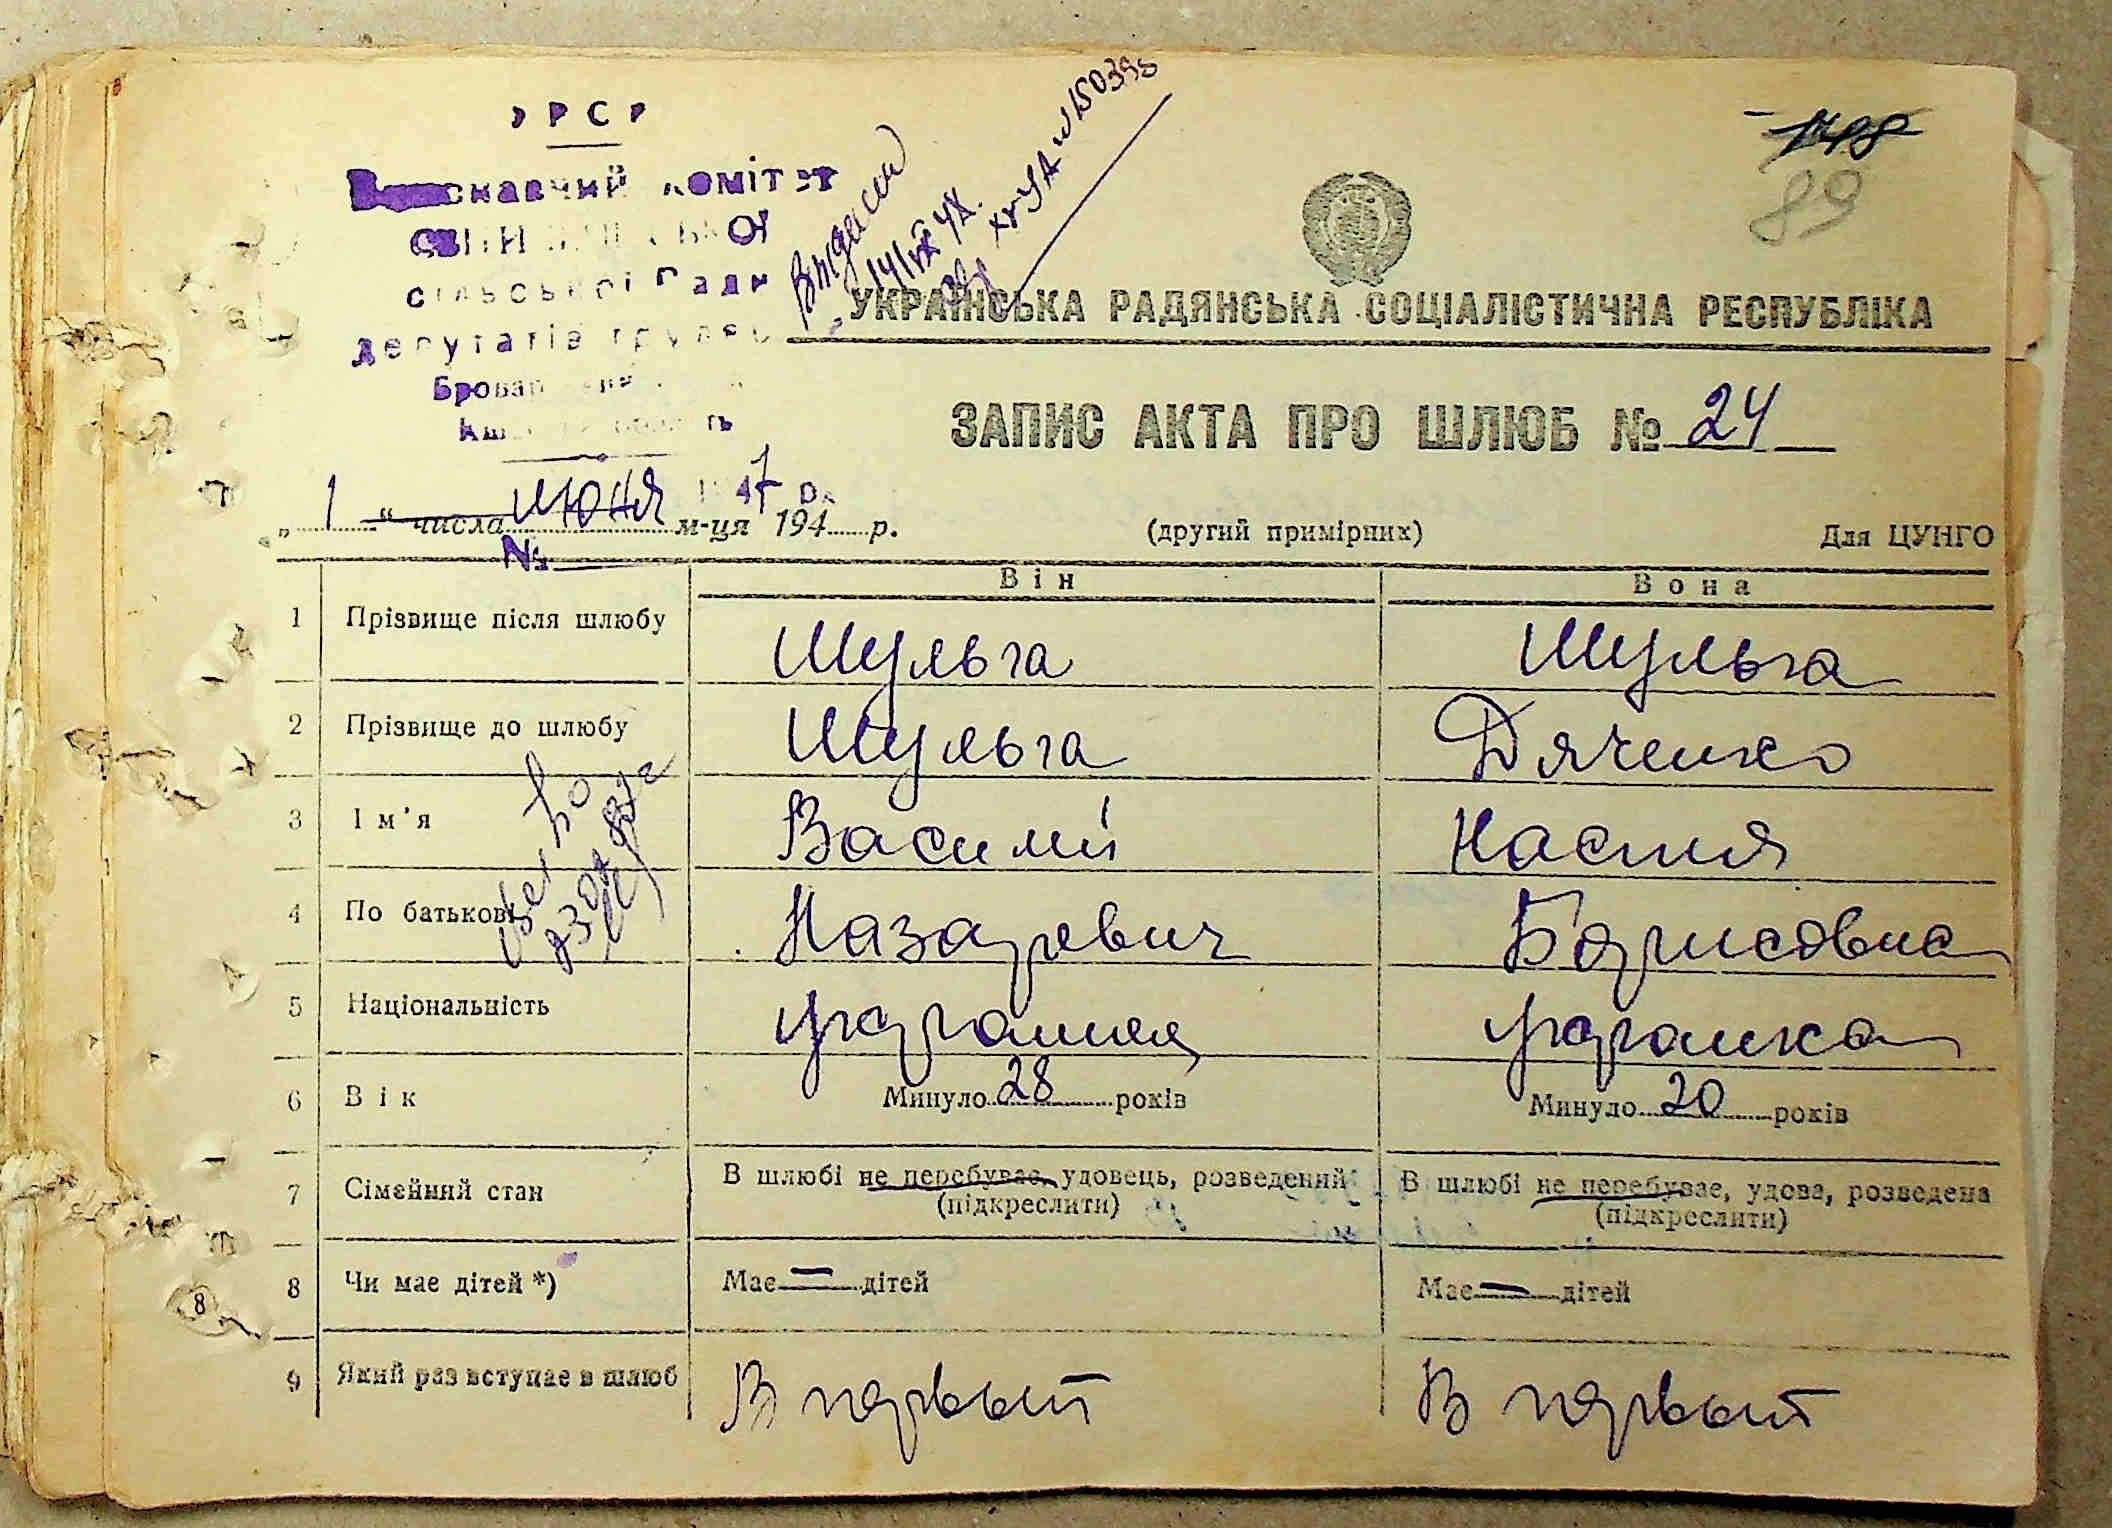 УРСР
Виконавчий комітет
сільської Ради
депутатів трудящ
148
89
УКРАЇНСЬКА РАДЯНСЬКА СОЦІАЛІСТИЧНА РЕСПУБЛІКА
ЗАПИС АКТА ПРО ШЛЮБ № 24
„ 1 “ числа июня м-ця 1947 р.
(другий примірник)
Для ЦУНГО
№
Він
Вона
1 Прізвище після шлюбу Шульга Шульга
2 Прізвище до шлюбу Шульга Дяченко
3 Ім’я Василий Настя
4 По батькові Назарович Борисовна
5 Національність украинец украинка
6 Вік Минуло 28 років Минуло 20 років
7 Сімейний стан В шлюбі не перебуває, удовець, розведений В шлюбі не перебуває, удова, розведена
(підкреслити) (підкреслити)
8 Чи має дітей *) Має — дітей Має — дітей
8
9 Який раз вступає в шлюб В первый В первый